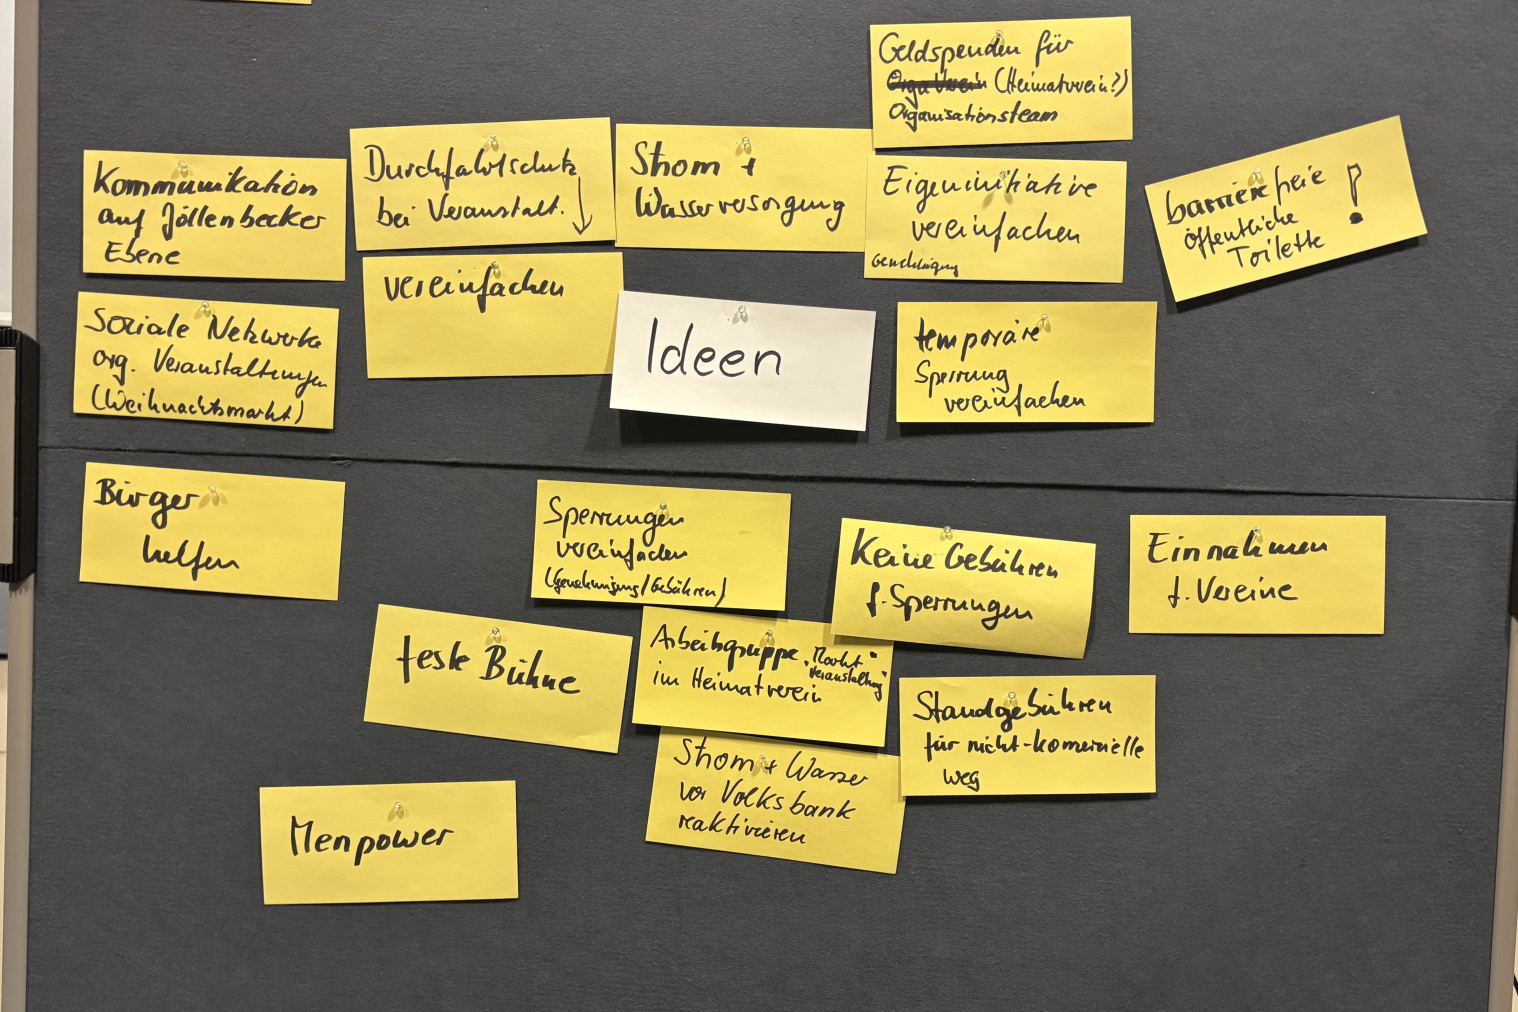 Geldspenden für
Orga Verein (Heimatverein?)
Organisationsteam
Kommunikation
auf Jöllenbecker
Ebene
Durchfahrtschutz
bei Veranstalt. ↓
Strom +
Wasserversorgung
Eigeninitiative
vereinfachen
Genehmigung
barrierefreie
öffentliche
Toilette !
Soziale Netzwerke
org. Veranstaltungen
(Weihnachtsmarkt)
vereinfachen
Ideen
temporäre
Sperrung
vereinfachen
Bürger
helfen
Sperrungen
vereinfachen
(Genehmigung/Gebühren)
Keine Gebühren
f. Sperrungen
Einnahmen
f. Vereine
feste Bühne
Arbeitsgruppe „Markt"
Veranstaltung"
im Heimatverein
Standgebühren
für nicht-komerzielle
weg
Strom + Wasser
vor Volksbank
reaktivieren
Menpower